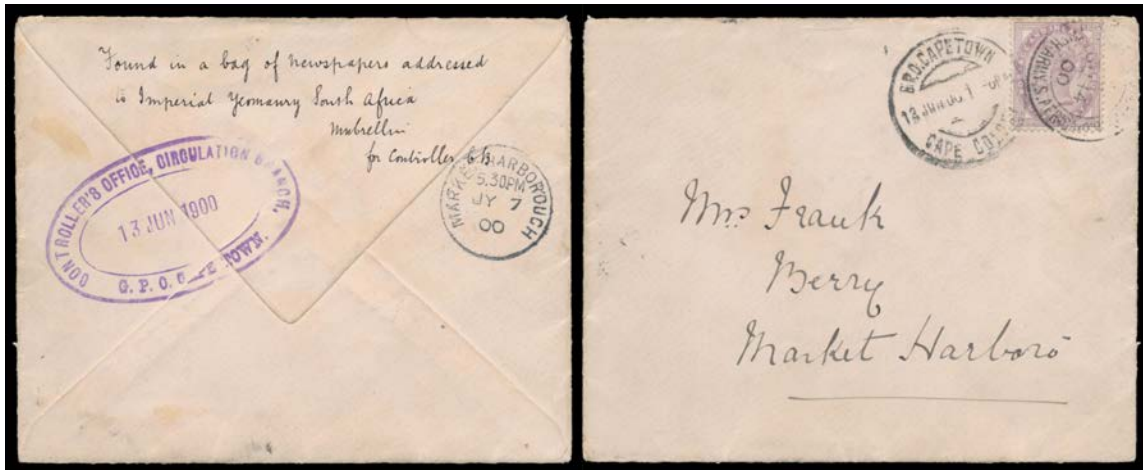 Found in a bag of newspapers addressed
to Imperial Yeomanry South Africa
for Controller, C.B
CONTROLLER'S OFFICE, CIRCULATION BRANCH,
13 JUN 1900
G.P.O. CAPE TOWN.
MARKET HARBOROUGH
5.30PM
JY 7
00
G.P.O. CAPETOWN
13 JUN 00
CAPE COLONY
00
Mrs Frank
Berry
Market Harboro